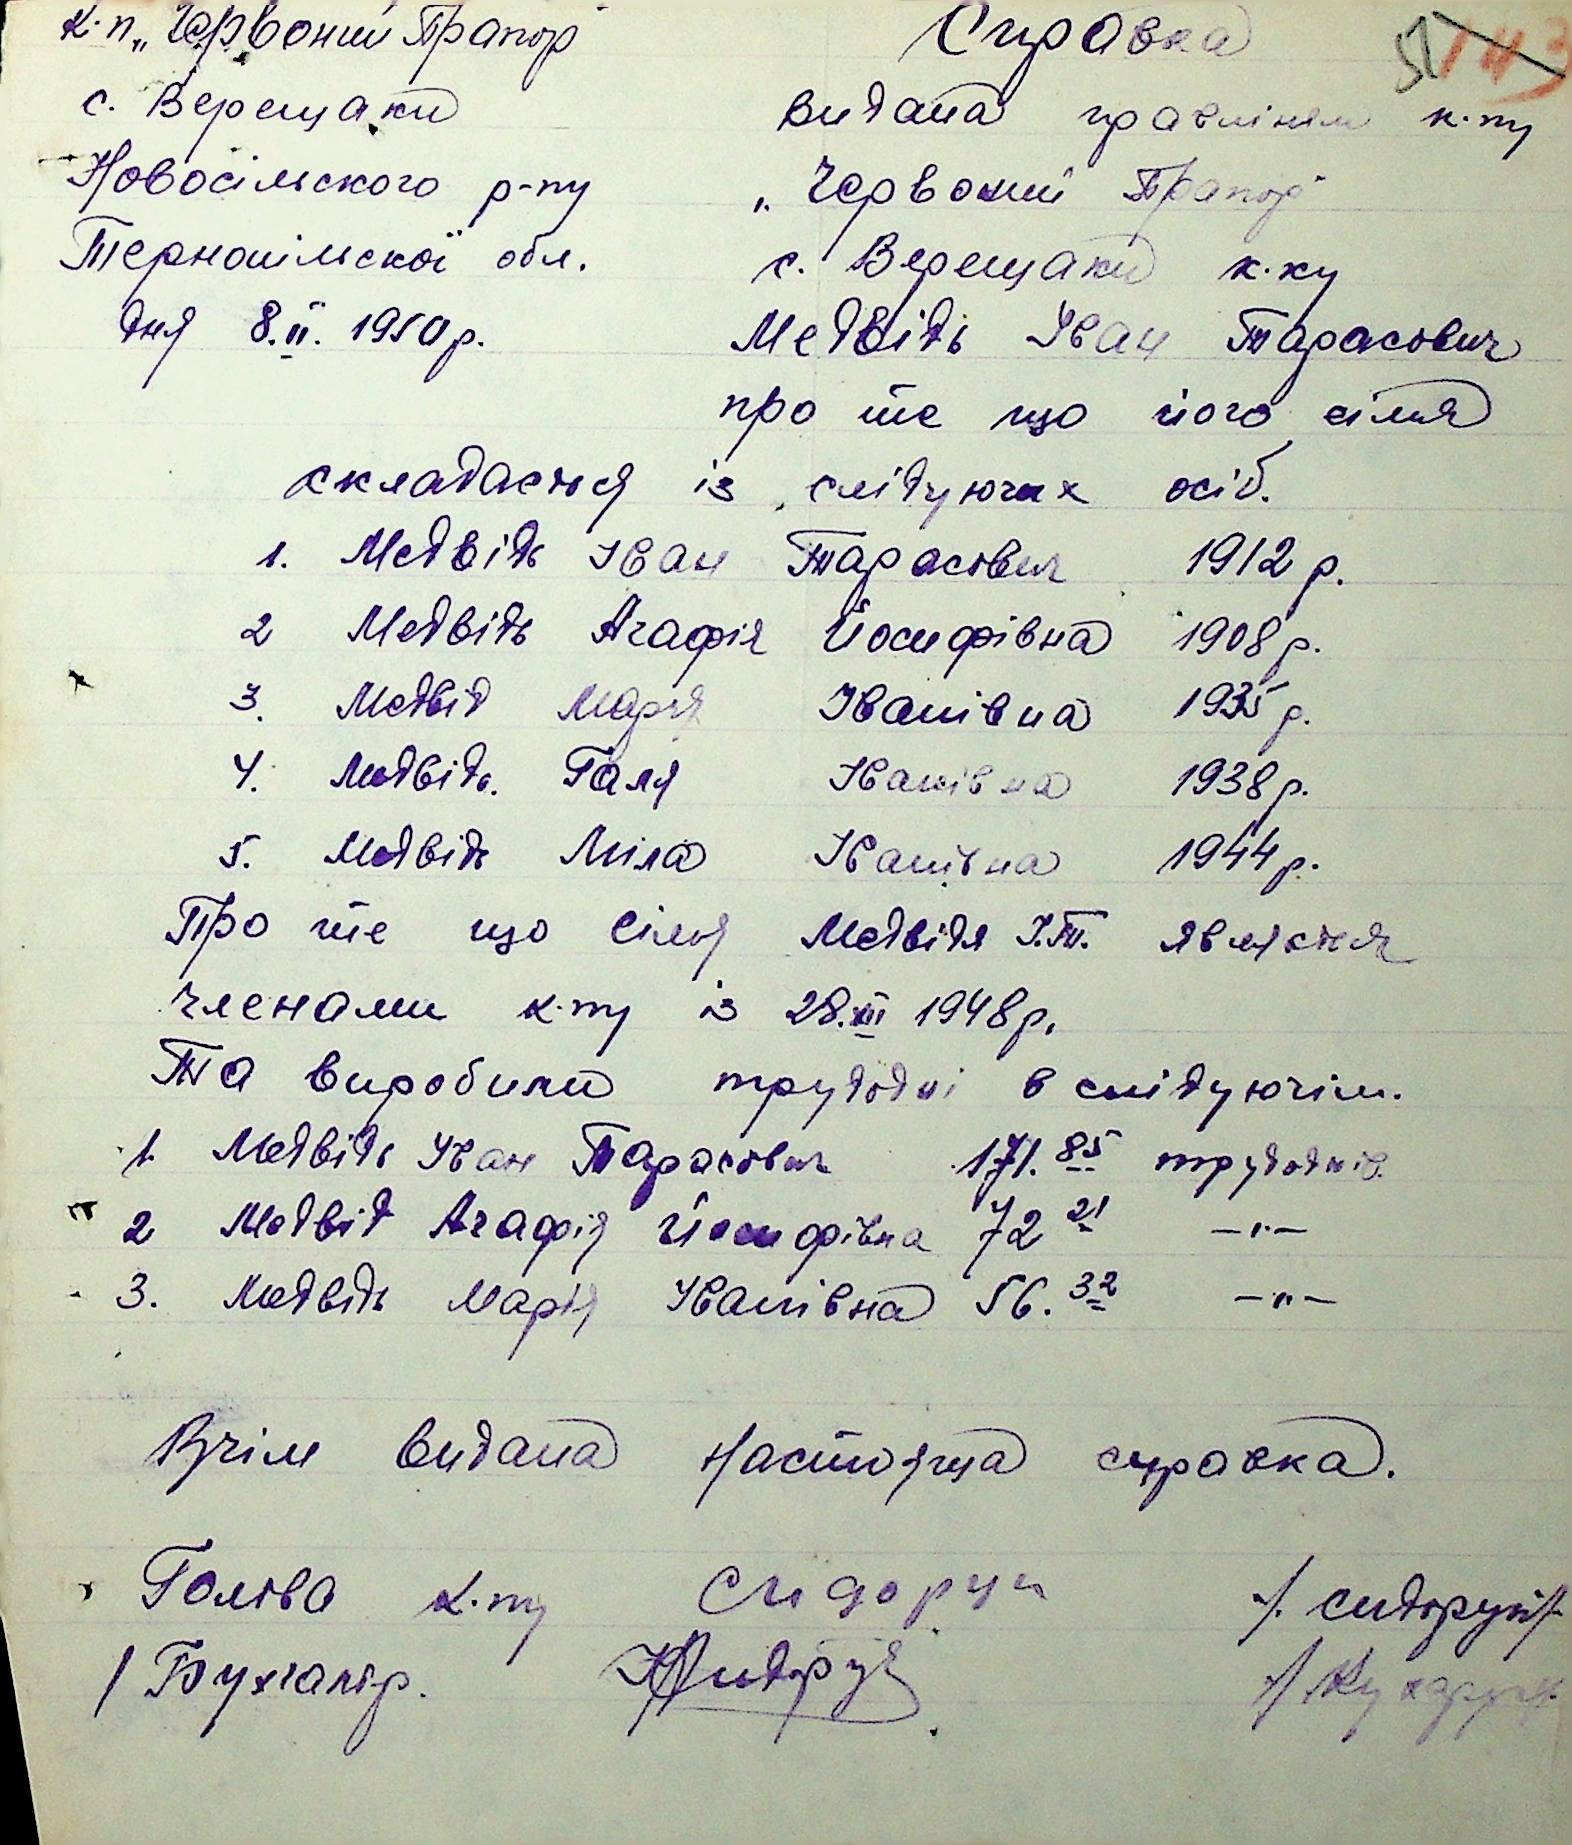 к-п „Червоний Прапор"
с. Верещаки
Новосільского р-ну
Тернопільскої обл.
дня 8.II. 1950 р.
Справка
видана правліням к-пу
„Червоний Прапор"
с. Верещаки к-ку
Медвідь Іван Тарасович
про те що його сімя
складається із слідуючих осіб.
1. Медвідь Іван Тарасович 1912 р.
2 Медвідь Агафія Йосифівна 1908 р.
3. Медвід Марія Іванівна 1935 р.
4. Медвідь. Галя Іванівна 1938 р.
5. Медвідь Міла Іванівна 1944 р.
Про те що сімя Медвідя І.Т. являєтся
членами к-пу із 28.III 1948 р.
Та виробили трудодні в слідуючім.
1. Медвідь Іван Тарасович 171.85 трудоднів.
2 Медвід Агафія Йосифівна 72 21 -"-
3. Медвідь Марія Іванівна 56.32 -"-
Вчім видана настояща справка.
Голова к-пу Сидорук /. Сидорук/
/ Бухгалтер.